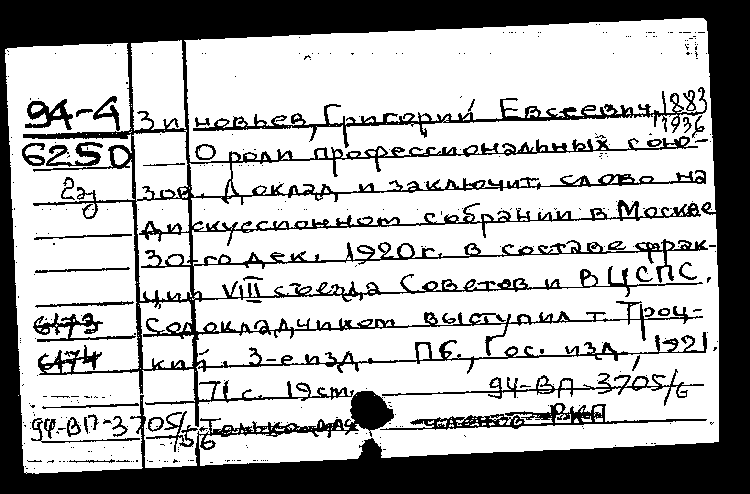 94-4 Зиновьев, Григорий Евсеевич, 1883
1936
625D О роли профессиональных сою-
2аз зов. Доклад и заключит. слово на
дискуссионном собрании в Москве
30-го дек. 1920 г. в составе фрак-
ции VIII съезда Советов и ВЦСПС.
6173 Содокладчиком выступил т. Троц-
6174 кий. 3-е изд. Пб., Гос. изд., 1921.
71 с. 19 см. 94-ВП-3705/6
94-ВП-3705/5-6 Только для членов РКП